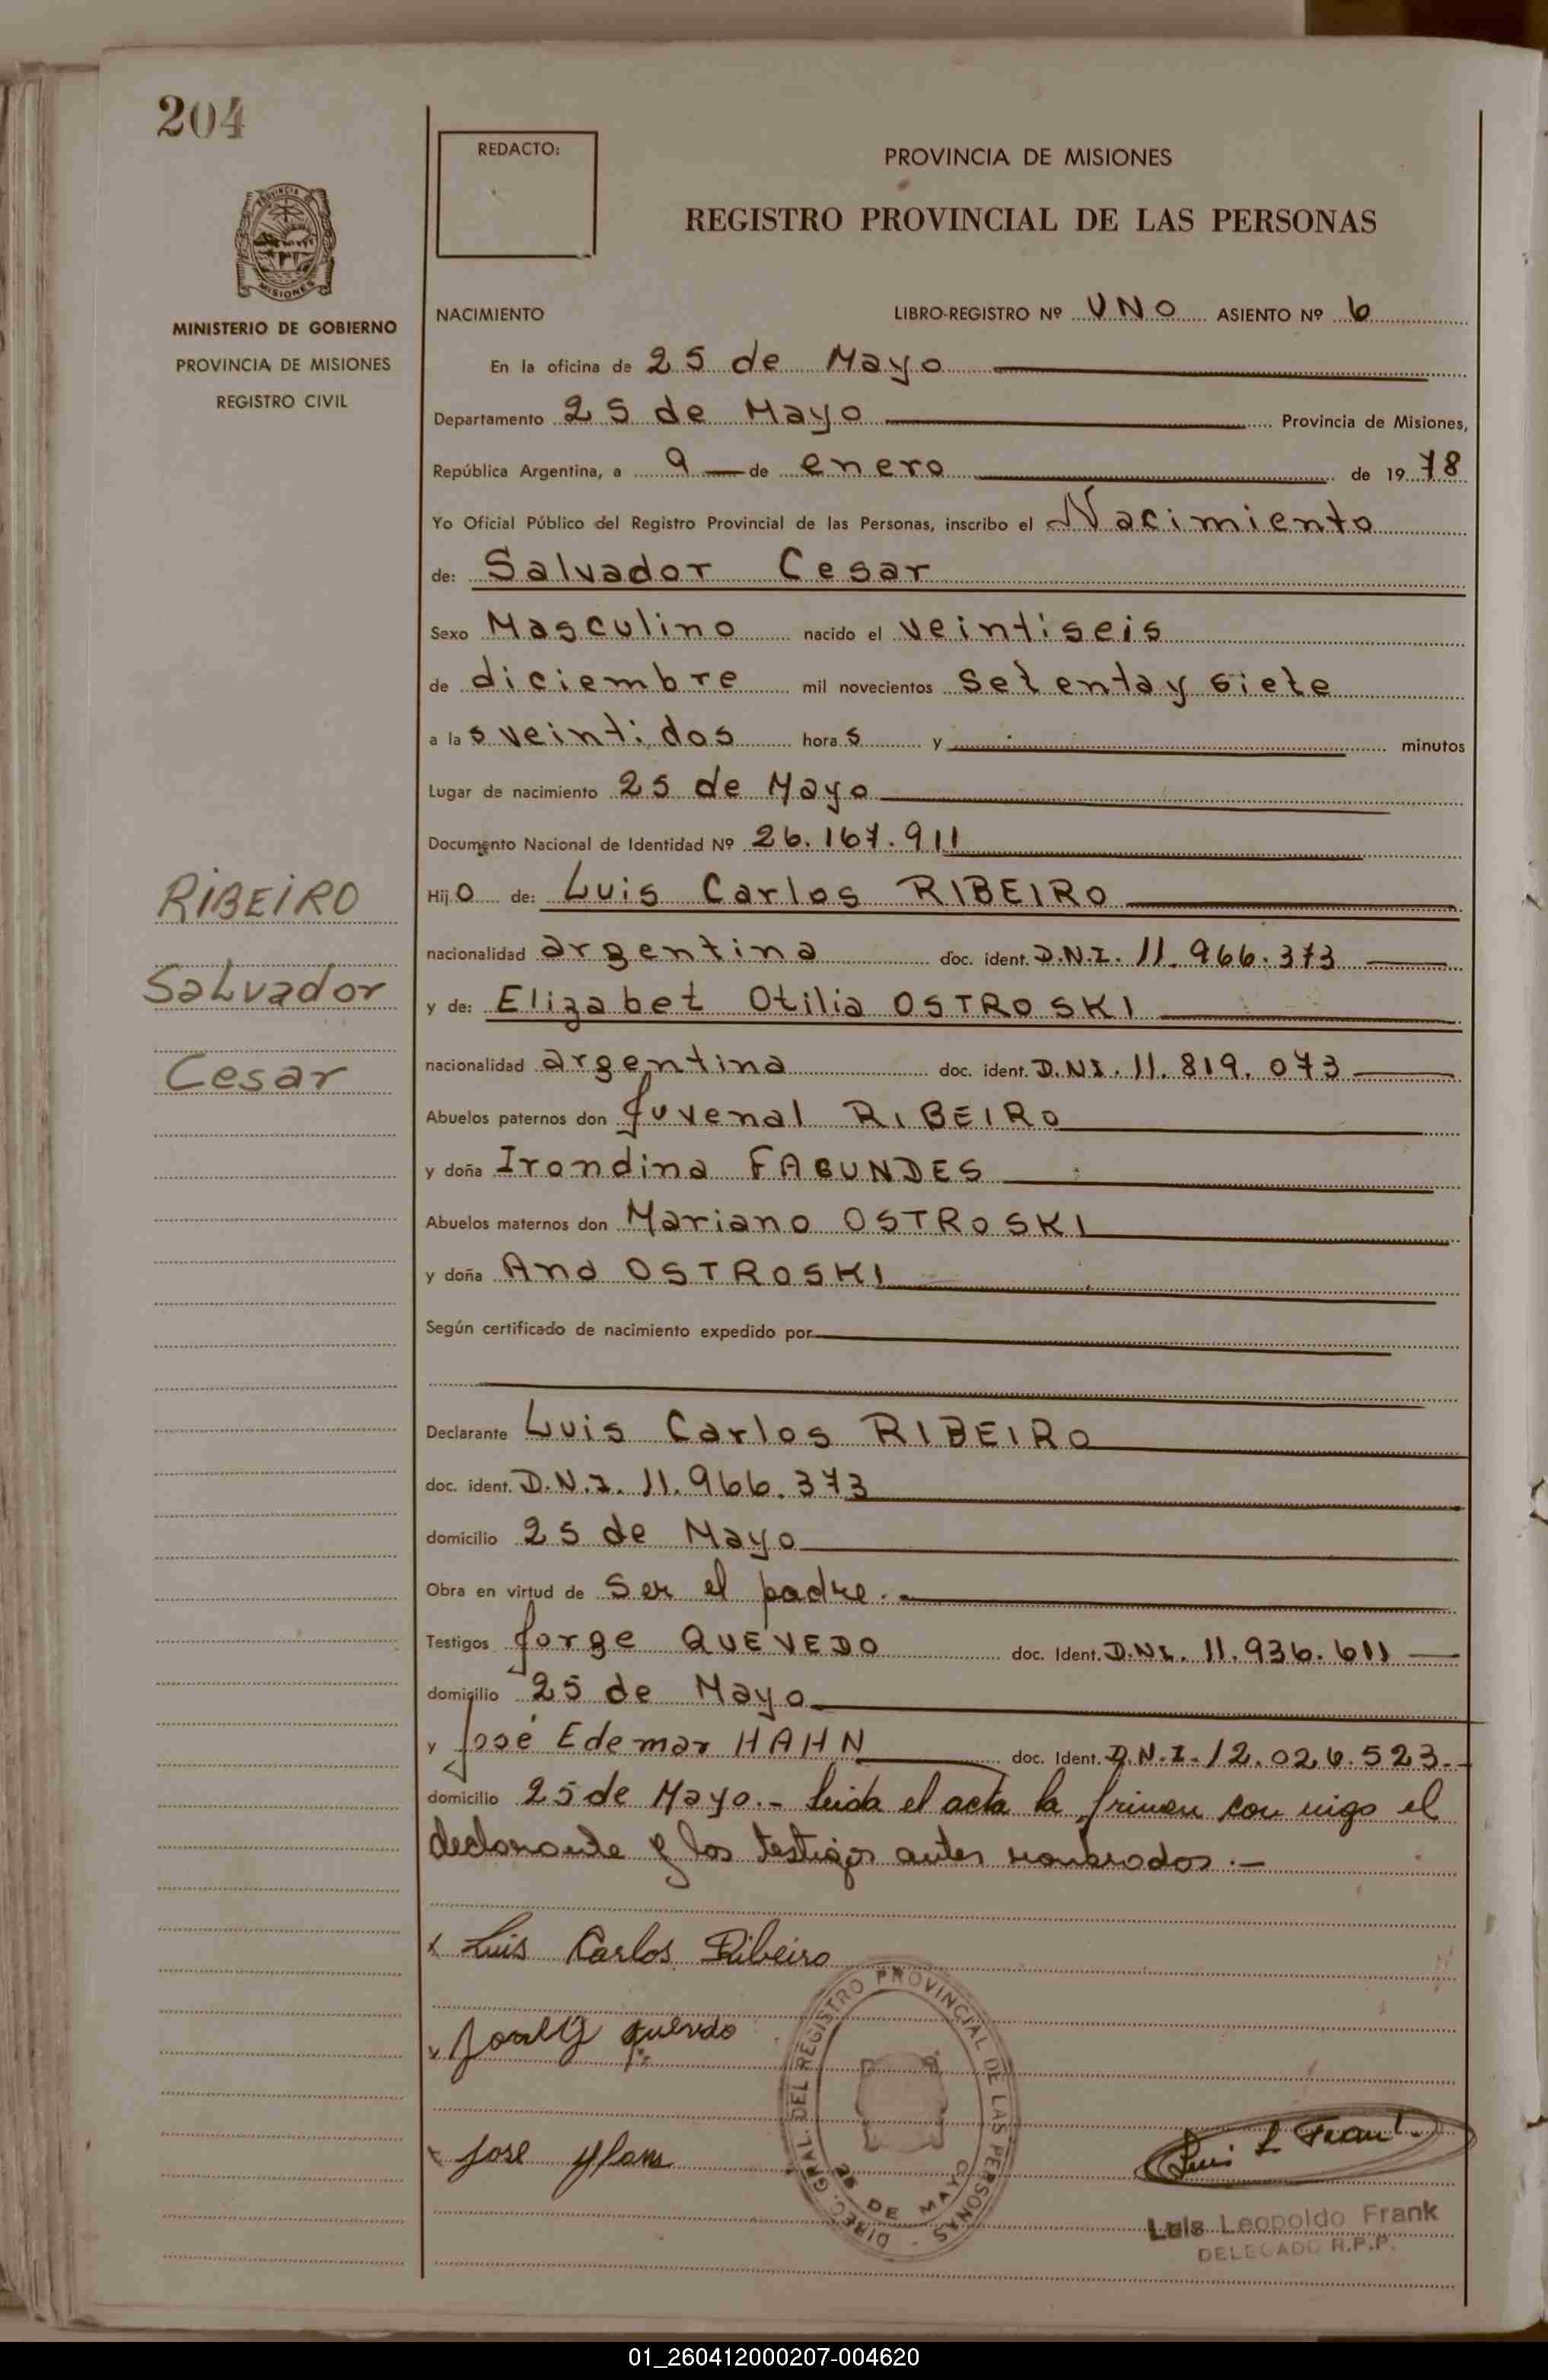 204
PROVINCIA
MISIONES
MINISTERIO DE GOBIERNO
PROVINCIA DE MISIONES
REGISTRO CIVIL
REDACTO:
PROVINCIA DE MISIONES
REGISTRO PROVINCIAL DE LAS PERSONAS
NACIMIENTO LIBRO-REGISTRO Nº UNO ASIENTO Nº 6
En la oficina de 25 de Mayo
Departamento 25 de Mayo Provincia de Misiones,
República Argentina, a 9 de enero de 1978
Yo Oficial Público del Registro Provincial de las Personas, inscribo el Nacimiento
de: Salvador Cesar
Sexo Masculino nacido el veintiseis
de diciembre mil novecientos setenta y siete
a las veintidos horas y minutos
Lugar de nacimiento 25 de Mayo
Documento Nacional de Identidad Nº 26.167.911
RIBEIRO
Salvador
Cesar
Hijo de: Luis Carlos RIBEIRO
nacionalidad argentina doc. ident. D.N.I. 11.966.373
y de: Elizabet Otilia OSTROSKI
nacionalidad argentina doc. ident. D.NI. 11.819.073
Abuelos paternos don Juvenal RIBEIRO
y doña Irondina FAGUNDES
Abuelos maternos don Mariano OSTROSKI
y doña Ana OSTROSKI
Según certificado de nacimiento expedido por
Declarante Luis Carlos RIBEIRO
doc. ident. D.N.I. 11.966.373
domicilio 25 de Mayo
Obra en virtud de ser el padre.
Testigos Jorge QUEVEDO doc. Ident. D.NI. 11.936.611
domicilio 25 de Mayo
y José Edemar HAHN doc. Ident. D.N.I. 12.026.523.-
domicilio 25 de Mayo.- leida el acta la firman con migo el
declarante y los testigos antes nombrados.-
x Luis Carlos Ribeiro
Quevedo
Jose
DIREC. GRAL. DEL REGISTRO PROVINCIAL DE LAS PERSONAS
25 DE MAYO
Luis L Frank
Luis Leopoldo Frank
DELEGADO R.P.P.
01_260412000207-004620